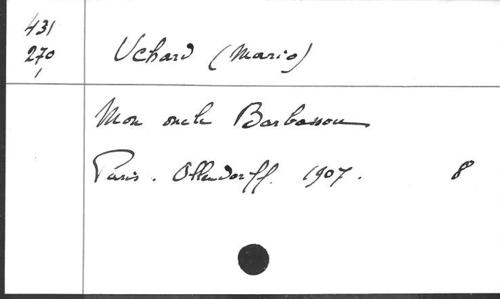 431
270
1
Uchard (Mario)
Mon oncle Barbassou
Paris. Ollendorff. 1907. 8